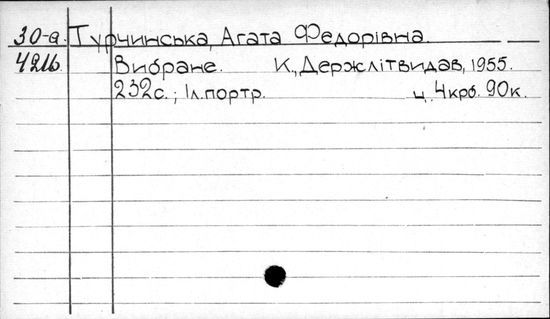 30-а. Турчинська, Агата Федорівна.
421б. Вибране. К., Держлітвидав, 1955.
232с.; 1л.портр. ц. 4крб. 90к.